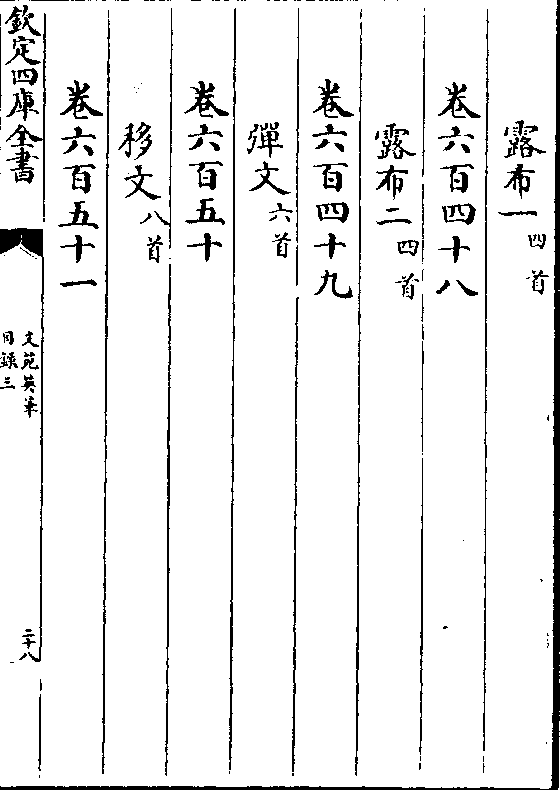 露布一四首
卷六百四十八
露布二四首
卷六百四十九
彈文六首
卷六百五十
移文八首
卷六百五十一
欽定四庫全書
文苑英華
目錄三
二十八